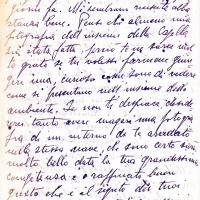 giorni fa. Mi sembrano riuscite abba
stanza bene. Penso che almeno una
fotografia dell'insieme della Capella
sia stata fatta, perciò ti sarei mol
to grato se tu volessi farmene giun
gere una, curioso come sono di vedere
come si presentano nell'insieme dello
ambiente. Se non ti dispiace desidere
rei tanto avere magari una fotogra
fia di un interno da te arredato
nello stesso, che sono certo sarà
molto bello data la tua grandissima
competenza e raffinato buon
gusto che è il segreto dei tuoi